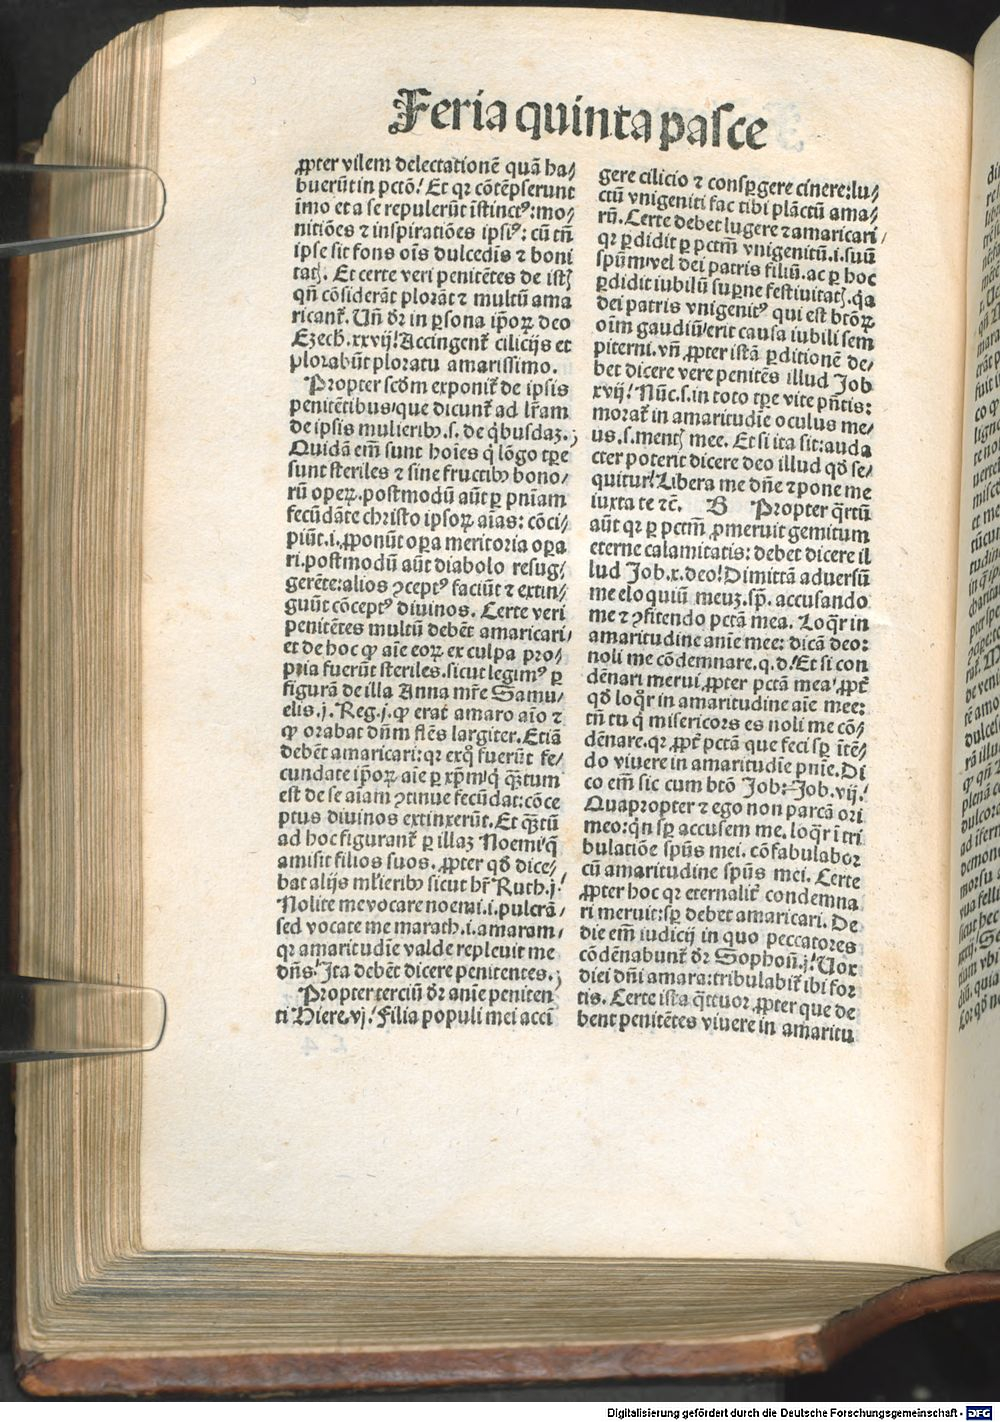 Feria quinta pasce
ꝓpter vilem delectationē quā ha⸗
buerūt in pctō! Et qꝛ cōtēpserunt
īmo et a se repulerūt īstinctꝰ: mo⸗
nitiōes ⁊ inspiratiōes ipsiꝰ: cū tñ
ipse sit fons oīs dulcedīs ⁊ boni
tatꝭ. Et certe veri penitētes de istꝭ
qñ cōsiderāt plorāt ⁊ multū ama
ricant̄. Uñ dr̄ in ꝑsona ip̄oꝝ deo
Ezech. xxvij! Accingent̄ cilicijs et
plorabūt ploratu amarissimo.
Propter scd̄m exponit̄ de ipsis
penitētibus/que dicunt̄ ad lr̄am
de ipsis mulierib⁹. s. de qͥbusdaꝫ.
Quidā em̄ sunt hoīes qͥ lōgo tꝑe
sunt steriles ⁊ sine fructib⁹ bono⸗
rū oꝑeꝝ. postmodū aūt ꝑ pniam
fecūdāte christo ipsoꝝ aīas: cōci⸗
piūt. i. ꝓponūt oꝑa meritoria oꝑa
ri. postmodū aūt diabolo resug⸗
gerēte: alios ꝯceptꝰ faciūt ⁊ extin⸗
guūt cōceptꝰ diuinos. Certe veri
penitētes multū debēt amaricari/
et de hoc ꝙ aīe eoꝝ ex culpa pro⸗
pria fuerūt steriles. sicut legimꝰ ꝑ
figurā de illa Anna mr̄e Samu⸗
elis. j. Reg. j. ꝙ erat amaro aīo ⁊
ꝙ orabat dn̄m flēs largiter. Etiā
debēt amaricari: qꝛ exqͦ fuerūt fe⸗
cundate ip̄oꝝ aīe ꝑ xp̄m/qͥ qͣꝫtum
est de se aīam ꝯtinue fecūdat: cōce
ptus diuinos extinxerūt. Et qͣꝫtū
ad hoc figurant̄ ꝑ illaꝫ Noemi/q̄
amisit filios suos. ꝓpter qd̄ dice⸗
bat alijs ml̄ierib⁹ sicut hr̄ Ruth. j!
Nolite me vocare noemi. i. pulcrā/
sed vocate me marath. i. amaram/
qꝛ amaritudīe valde repleuit me
dn̄s! Ita debēt dicere penitentes.
Propter terciū dr̄ anīe peniten
ti Hiere. vj! Filia populi mei acci
gere cilicio ⁊ consꝑgere cinere: lu⸗
ctū vnigeniti fac tibi plāctū ama⸗
rū. Certe debet lugere ⁊ amaricari/
qꝛ ꝑdidit ꝑ pctm̄ vnigenitū. i. suū
spūm/vel dei patris filiū. ac ꝑ hoc
ꝑdidit iubilū suꝑne festiuitatꝭ. qͣa
dei patris vnigenitꝰ qui est btōꝝ
oīm gaudiū/erit causa iubili sem
piterni. vñ ꝓpter istā ꝑditionē de⸗
bet dicere vere penitēs illud Job
xvij! Nūc. s. in toto tꝑe vite pn̄tis:
morat̄ in amaritudīe oculus me⸗
us. s. mentꝭ mee. Et si ita sit: auda
cter poterit dicere deo illud qd̄ se⸗
quitur! Libera me dn̄e ⁊ pone me
iuxta te ⁊c̄. B Propter qͣrtū
aūt qꝛ ꝑ pctm̄ ꝓmeruit gemitum
eterne calamitatis: debet dicere il
lud Job. x. deo! Dimittā aduersū
me eloquiū meuꝫ. sꝑ. accusando
me ⁊ ꝯfitendo pctā mea. Loqͣr in
amaritudine anīe mee: dicā deo:
noli me cōdemnare. q. d! Et si con
dēnari merui ꝓpter pctā mea/ ꝓpt̄
qd̄ loqͣr in amaritudine aīe mee:
tñ tu qͥ misericors es noli me cō⸗
dēnare. qꝛ ꝓpt̄ pctā que feci sꝑ ītē⸗
do viuere in amaritudīe pnīe. Di
co em̄ sic cum btō Job: Job. vij!
Quapropter ⁊ ego non parcā ori
meo: qͥn sꝑ accusem me. loqͣr ī tri
bulatiōe spūs mei. cōfabulabor
cū amaritudine spūs mei. Certe
ꝓpter hoc qꝛ eternalit̄ condemna
ri meruit: sꝑ debet amaricari. De
die em̄ iudicij in quo peccatores
cōdēnabunt̄ dr̄ Sophoñ. j! Uox
diei dn̄i amara: tribulabit̄ ibi for
tis. Certe ista qͣttuor ꝓpter que de
bent penitētes viuere in amaritu
Digitalisierung gefördert durch die Deutsche Forschungsgemeinschaft - DFG